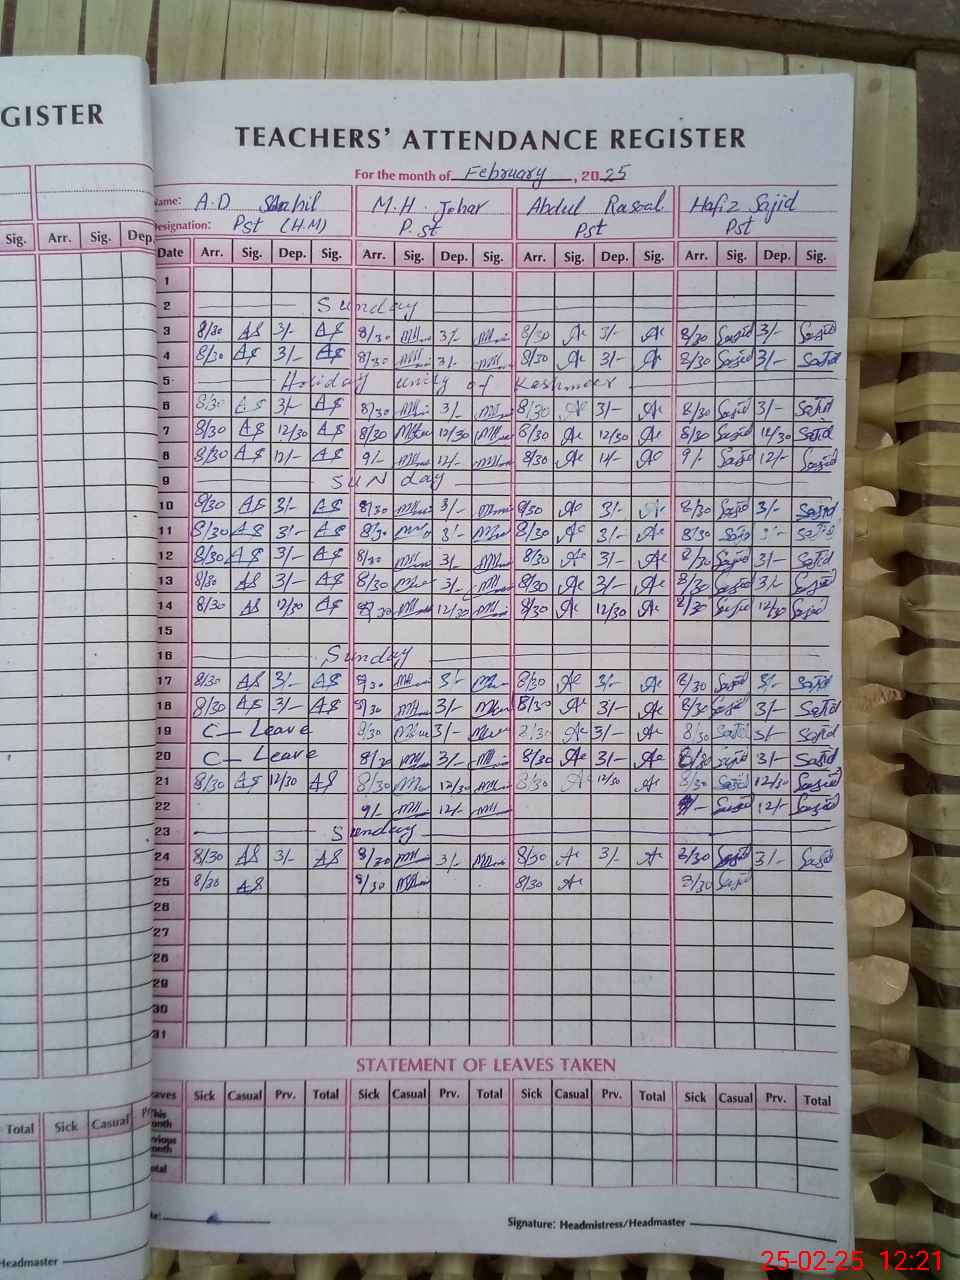 GISTER
TEACHERS’ ATTENDANCE REGISTER
For the month of February, 2025
Name: A.D Sahil M.H. Johar Abdul Rasool Hafiz Sajid
Designation: Pst (H.M) P.st Pst Pst
Sig. Arr. Sig. Dep. Date Arr. Sig. Dep. Sig. Arr. Sig. Dep. Sig. Arr. Sig. Dep. Sig. Arr. Sig. Dep. Sig.
1
2 Sunday
3 8/30 AS 3/- AS 8/30 3/- 8/30 Ar 3/- Ar 8/30 Sajid 3/- Sajid
4 8/30 AS 3/- AS 8/30 3/- 8/30 Ar 3/- Ar 8/30 Sajid 3/- Sajid
5 Holiday unity of Keshmeer
6 8/30 AS 3/- AS 8/30 3/- 8/30 Ar 3/- Ar 8/30 Sajid 3/- Sajid
7 8/30 AS 12/30 AS 8/30 12/30 8/30 Ar 12/30 Ar 8/30 Sajid 12/30 Sajid
8 8/30 AS 12/- AS 9/- 12/- 8/30 Ar Ar 9/- Sajid 12/- Sajid
9 SUN day
10 8/30 AS 3/- AS 8/30 3/- 8/30 Ar 3/- Ar 8/30 Sajid 3/- Sajid
11 8/30 AS 3/- AS 8/30 3/- 8/30 Ar 3/- Ar 8/30 Sajid Sajid
12 8/30 AS 3/- AS 8/30 3/- 8/30 Ar 3/- Ar 8/30 Sajid 3/- Sajid
13 8/30 AS 3/- AS 8/30 3/- 8/30 Ar 3/- Ar 8/30 Sajid 3/- Sajid
14 8/30 AS 12/30 AS 8/30 12/30 8/30 Ar 12/30 Ar 8/30 Sajid 12/30 Sajid
15
16 Sunday
17 8/30 AS 3/- AS 8/30 3/- 8/30 Ar 3/- Ar 8/30 Sajid 3/- Sajid
18 8/30 AS 3/- AS 8/30 3/- 8/30 Ar 3/- Ar 8/30 Sajid 3/- Sajid
19 C- Leave 8/30 3/- Ar 3/- Ar 8/30 Sajid 3/- Sajid
20 C- Leave 8/30 3/- 8/30 Ar 3/- Ar 8/30 Sajid 3/- Sajid
21 8/30 AS 12/30 AS 8/30 12/30 8/30 Ar 12/30 Ar 8/30 Sajid 12/30 Sajid
22 9/- 12/- Sajid 12/- Sajid
23 Sunday
24 8/30 AS 3/- AS 8/30 3/- 8/30 Ar 3/- Ar 8/30 Sajid 3/- Sajid
25 8/30 AS 8/30 8/30 Ar 8/30 Sajid
26
27
28
29
30
31
STATEMENT OF LEAVES TAKEN
Total Sick Casual Leaves Sick Casual Prv. Total Sick Casual Prv. Total Sick Casual Prv. Total Sick Casual Prv. Total
This month
Previous month
Total
Headmaster
Signature: Headmistress/Headmaster
25-02-25 12:21